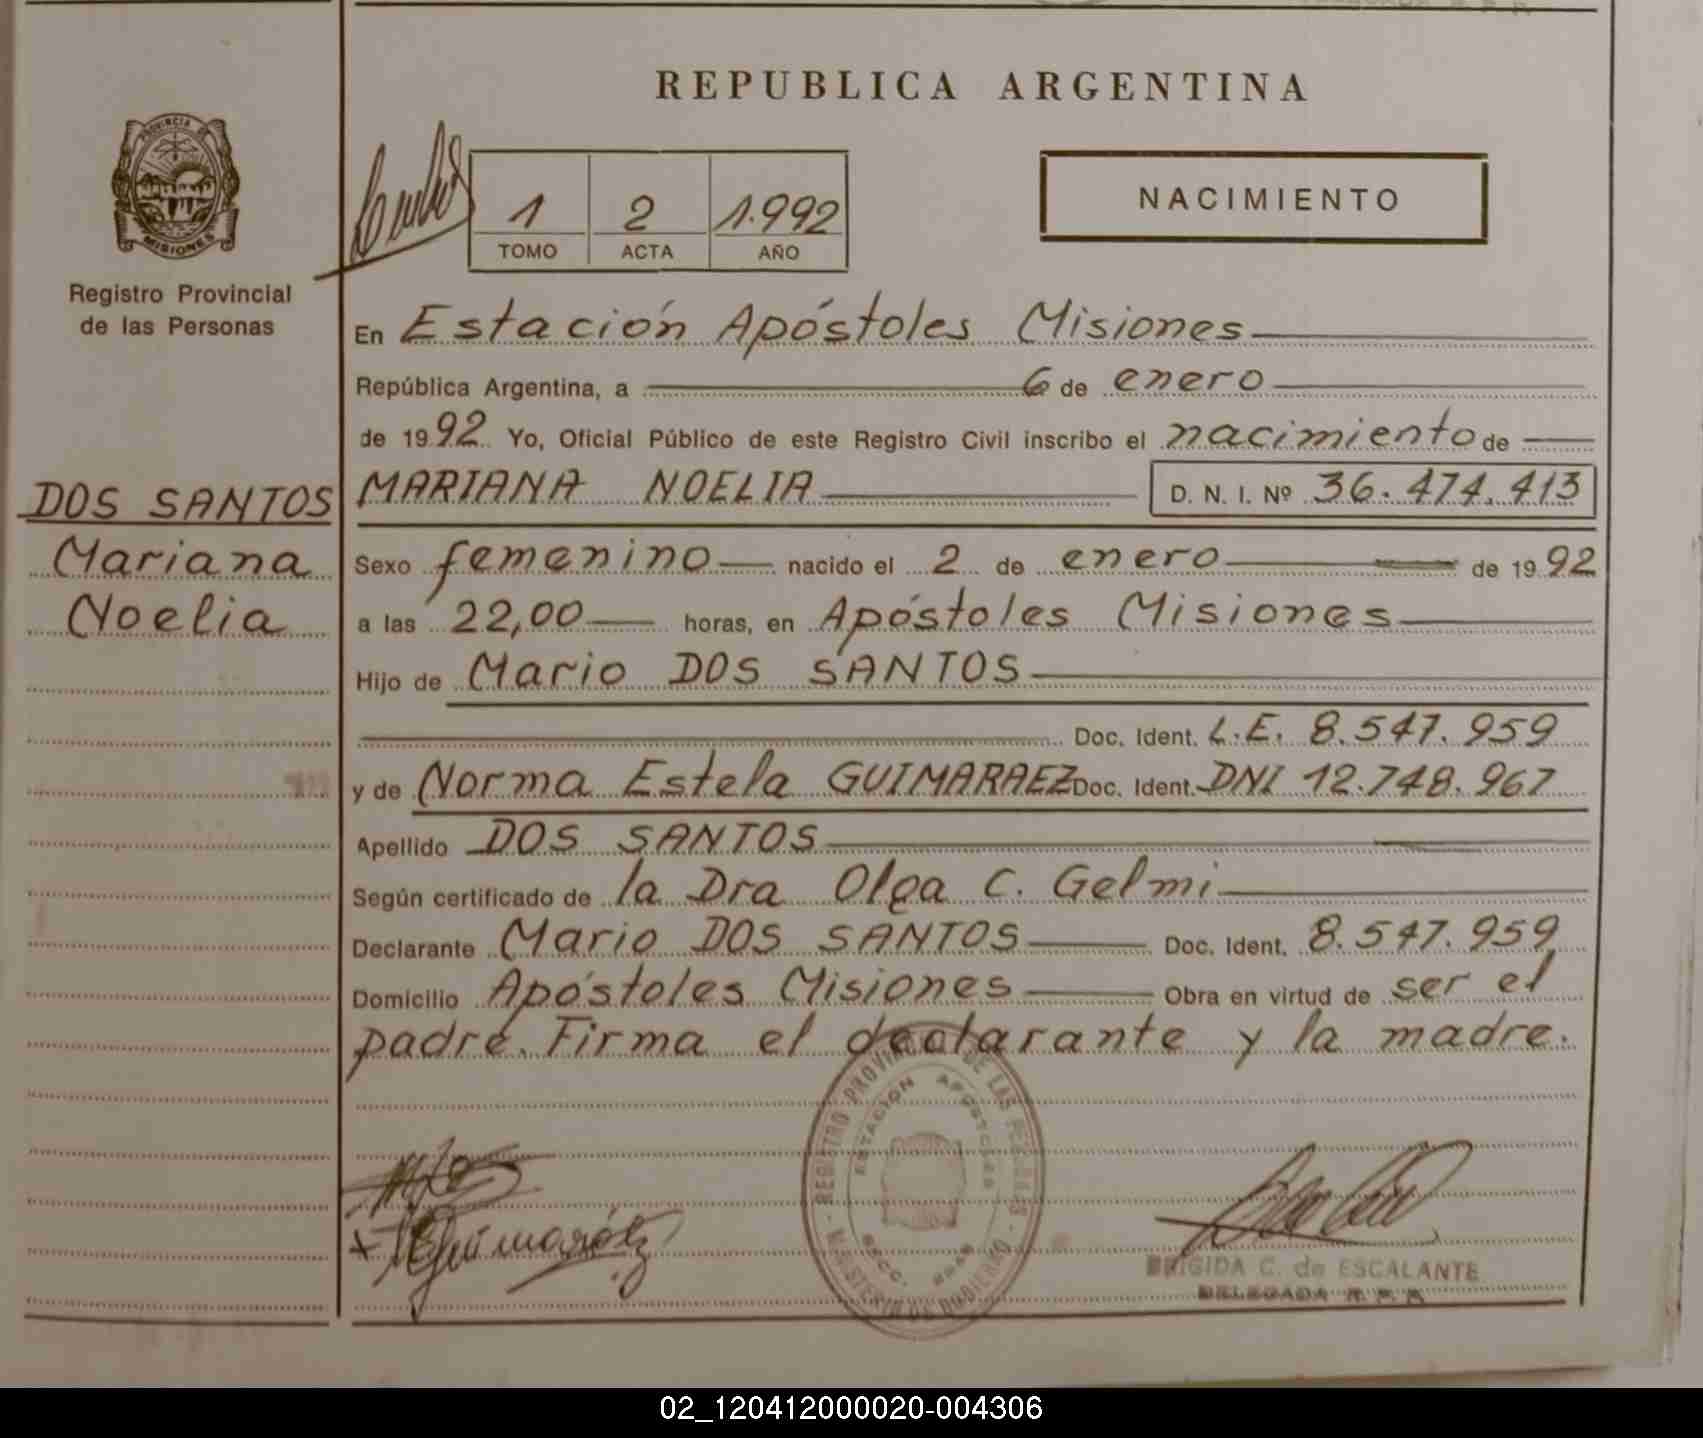 REPUBLICA ARGENTINA
PROVINCIA DE
MISIONES
Registro Provincial
de las Personas
1 2 1.992
TOMO ACTA AÑO
NACIMIENTO
En Estación Apóstoles Misiones
República Argentina, a 6 de enero
de 1992 Yo, Oficial Público de este Registro Civil inscribo el nacimiento de
DOS SANTOS
Mariana
Noelia
MARIANA NOELIA D. N. I. Nº 36.474.413
Sexo femenino nacido el 2 de enero de 1992
a las 22,00 horas, en Apóstoles Misiones
Hijo de Mario DOS SANTOS
Doc. Ident. L.E. 8.547.959
y de Norma Estela GUIMARAEZ Doc. Ident. DNI 12.748.967
Apellido DOS SANTOS
Según certificado de la Dra Olga C. Gelmi
Declarante Mario DOS SANTOS Doc. Ident. 8.547.959
Domicilio Apóstoles Misiones Obra en virtud de ser el
padre. Firma el declarante y la madre.
REGISTRO PROVINCIAL DE LAS PERSONAS
ESTACION APOSTOLES
MINISTERIO DE GOBIERNO
BRIGIDA C. de ESCALANTE
DELEGADA R. P. P.
02_120412000020-004306